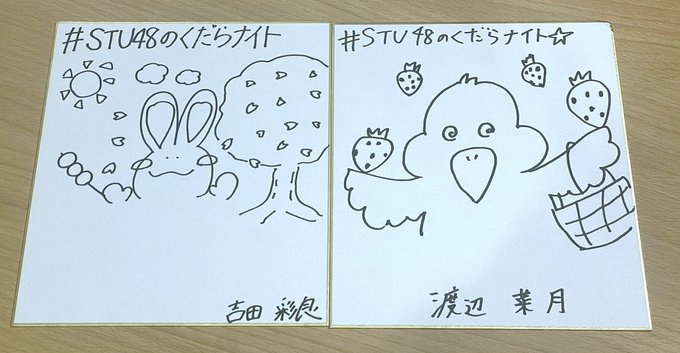 #STU48のくだらナイト
吉田 彩良
#STU48のくだらナイト☆
渡辺 菜月